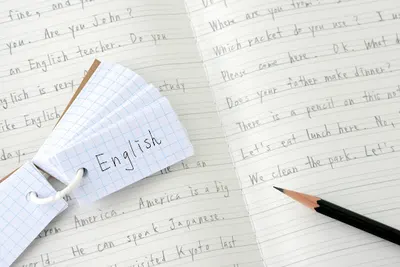 fine, and
you. Are you John?
an English teacher. Do you
English is very
like English study
today.
English
is an
from America. America is a big
world. He can speak Japanese.
visited Kyoto last
Where are you from?
Which racket do you use? I us
Please come here. Ok. What d
Does your father make dinner?
There is a pencil on this no
Let's eat lunch here. No,
We clean the park. Let's